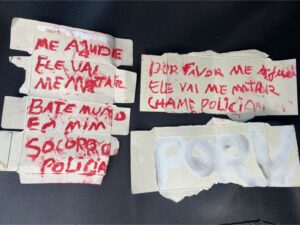 ME AJUDE
ELE VAI
ME MATAR
BATE MUITO
EM MIM
SOCORRO
POLICIA
POR FAVOR ME AJUDE
ELE VAI ME MATAR
CHAME POLICIA
POR